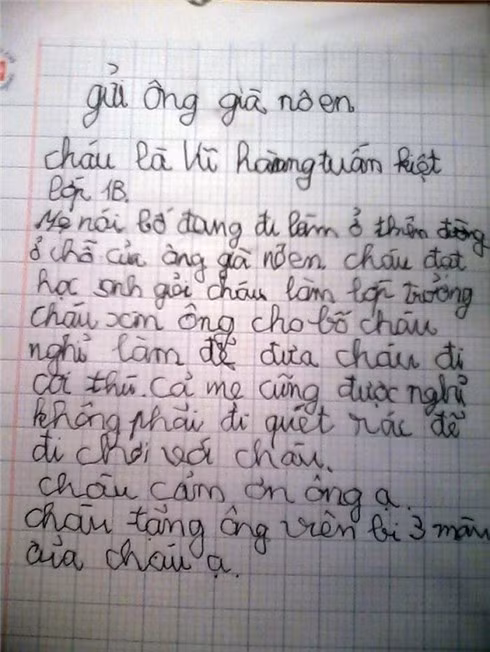 gửi ông già nô en.
cháu là Vũ hoàng tuấn kiệt
lớp 1B.
Mẹ nói bố đang đi làm ở thiên đường
ở chỗ của ông già nôen. cháu đạt
học sinh giỏi cháu làm lớp trưởng
cháu xin ông cho bố cháu
nghỉ làm để đưa cháu đi
coi thú. cả mẹ cũng được nghỉ
không phải đi quét rác để
đi chơi với cháu.
cháu cảm ơn ông ạ.
cháu tặng ông viên bi 3 màu
của cháu ạ.